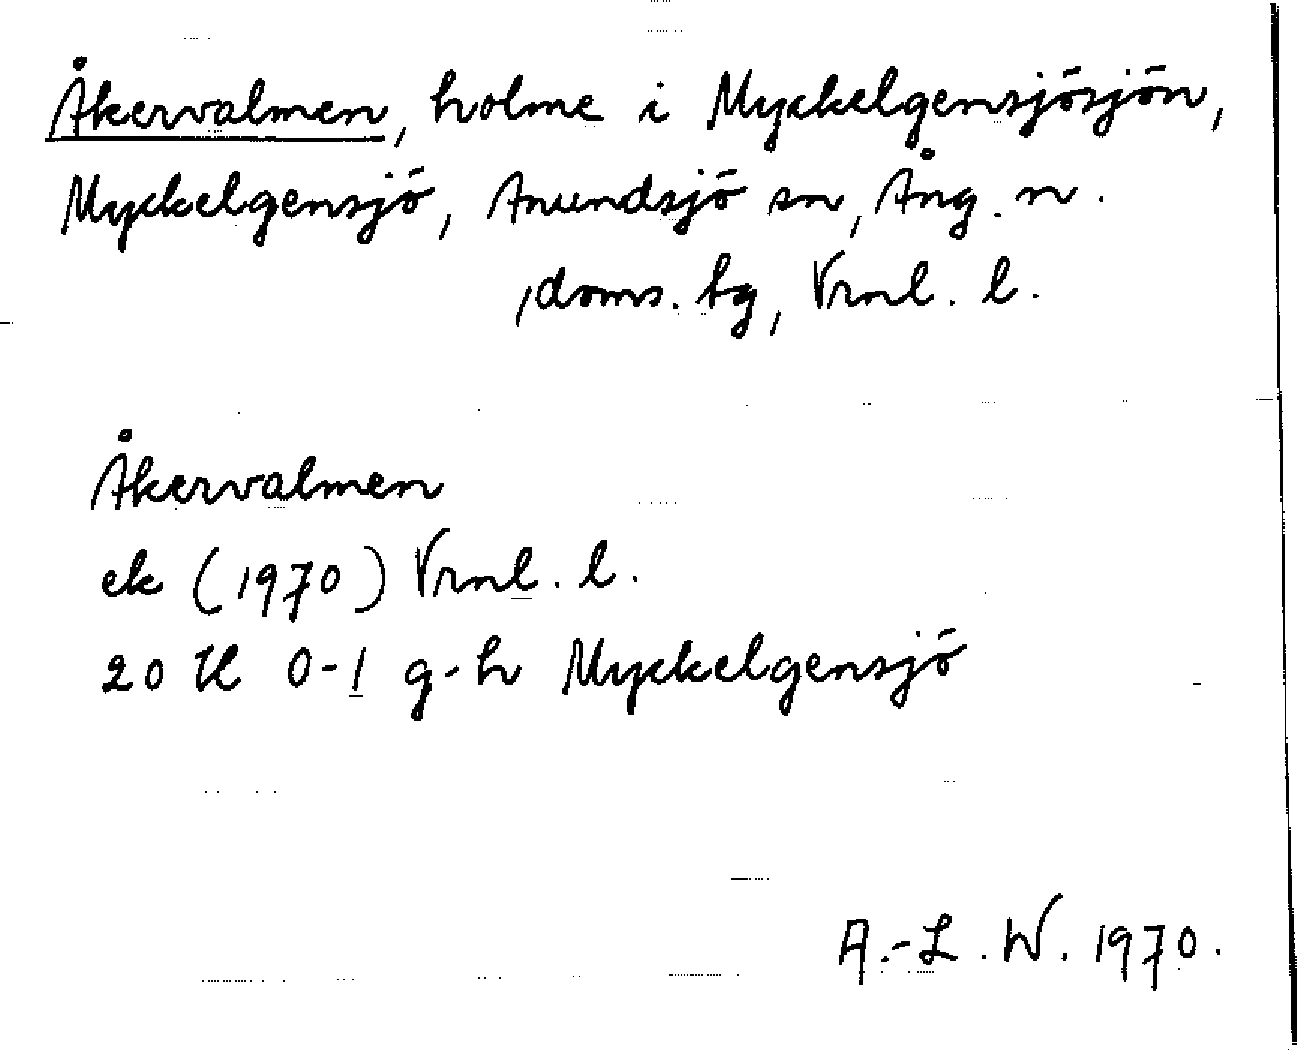 Åkervalmen, holme i Myckelgensjösjön,
Myckelgensjö, Anundsjö sn, Ång. n.
,doms. tg, Vrnl. l.
Åkervalmen
ek (1970) Vrnl. l.
20 H 0-1 g-h Myckelgensjö
A.-L. W. 1970.